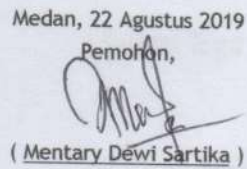 Medan, 22 Agustus 2019
Pemohon,
( Mentary Dewi Sartika )